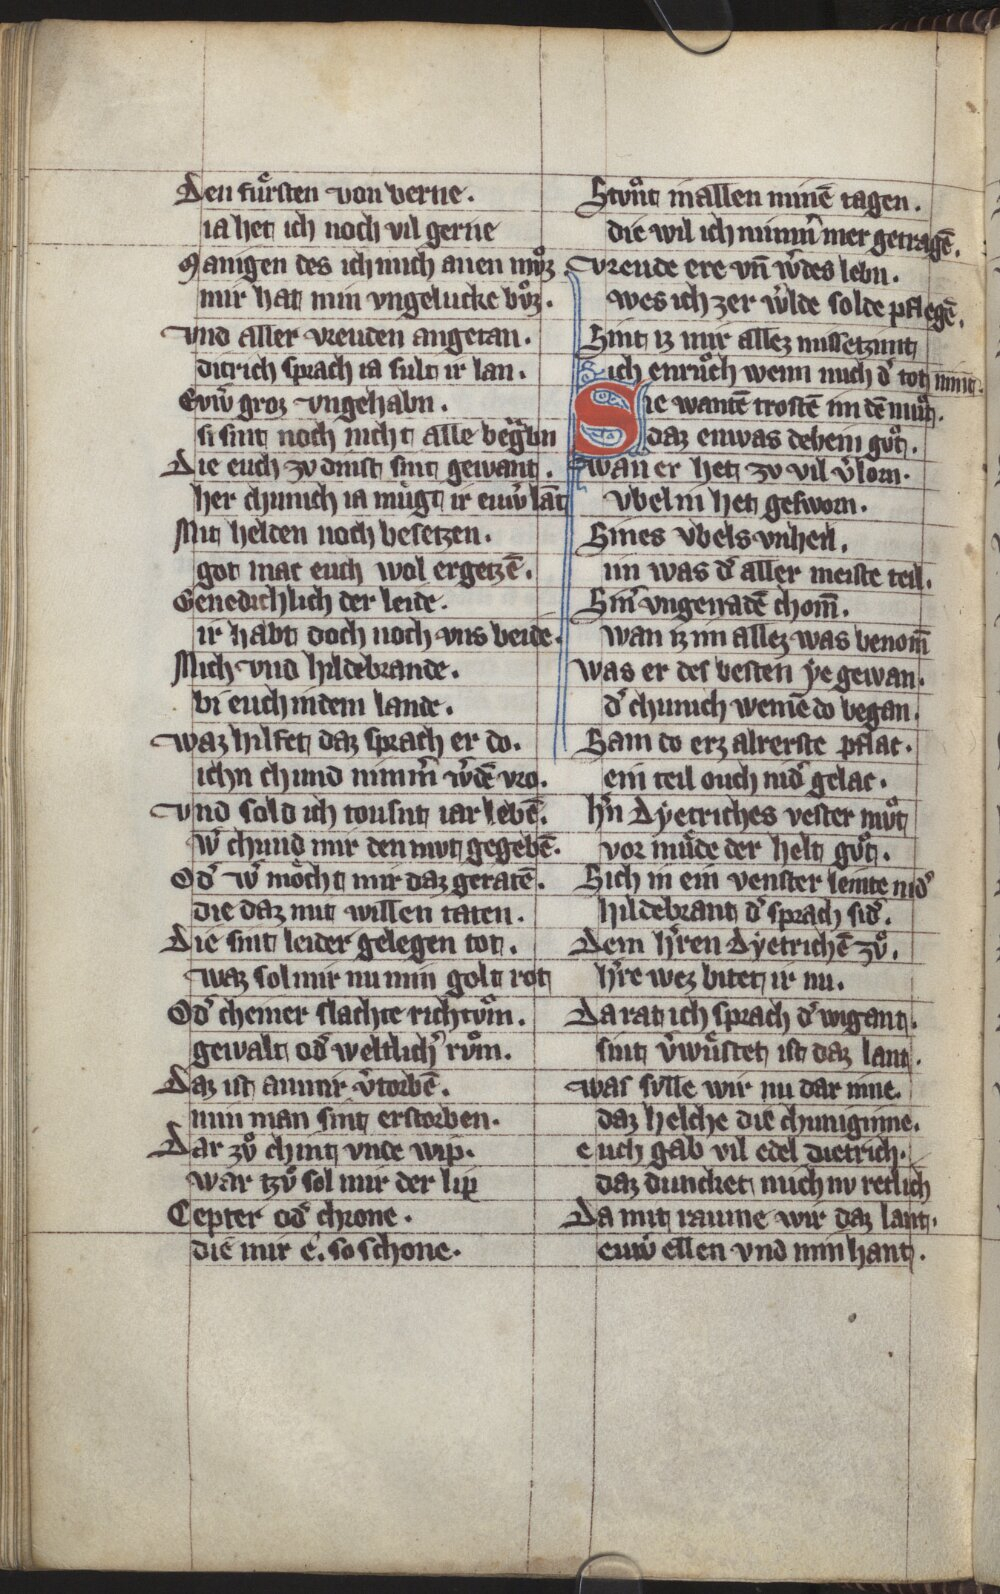 Den fuͤrsten von berne.
ia het ich noch vil gerne
Manigen des ich mich anen muͦz
mir hat min vngelucke buͦz.
Vnd aller vreuden angetan.
ditrich sprach ia sult ir lan.
Eviẘ groz vngehabn.
si sint noch nicht alle begᷓbn
Die euch zv dinst sint gewant.
her chunich ia mugt ir euẘ lāt
Mit helden noch besetzen.
got mac euch wol ergetzē.
Genedichlich der leide.
ir habt doch noch vns beide.
Mich vnd hildebrande.
bi euch in dem lande.
Waz hilfet daz sprach er do.
ichn chund nimm̄ w̓dē vro.
Vnd sold ich tousnt iar lebē.
w̓ chund mir den mvt gegebē.
Od̓ w̓ moͤcht mir daz geratē.
die daz mit willen taten.
Die sint leider gelegen tot.
waz sol mir nu min golt rot
Od̓ cheiner slachte richtvͦm.
gewalt od̓ weltlich̓ rvͦm.
Daz ist an mir v̓torbē.
min man sint erstorben.
Dar zvͦ chint vnde wip.
war tzvͦ sol mir der lip
Cepter od̓ chrone.
die mir e. so schone.
Stvͦnt in allen minē tagen.
die wil ich nimm̄ mer getragē.
Vreude ere vn̄ w̓des lebn.
wes ich zer w̓lde solde pflegē.
Sint iz mir allez missetzimt
Sich enruͦch wenn mich d̓ tot nimt.
Sie wantē trostē im dē muͦt.
daz enwas dehein guͦt.
Wan er het zv vil v̓lorn.
vbel in het gesworn.
Sines vbels vnheil.
im was d̓ aller meiste teil.
Sin̓ vngenadē chom̄.
wan iz im allez was benom̄
Was er des besten ye gewan.
d̓ chunich weinē do began.
Sam do erz alrerste pflac.
ein teil ouch nid̓ gelac.
H̓n Dyetriches vester muͦt
vor muͤde der helt guͦt.
Sich in ein venster leinte nid̓
hildebrant d̓ sprach sid̓.
Dem h̓ren Dyetrichē zvͦ.
h̓re wez bitet ir nu.
Da rat ich sprach d̓ wigant.
sint v̓wuͤstet ist daz lant.
Was svlle wir nu dar inne.
daz helche die chuniginne.
Euch gab vil edel dietrich.
daz duncket mich nv retlich
Da mit raume wir daz lant.
euẘ ellen vnd min hant.